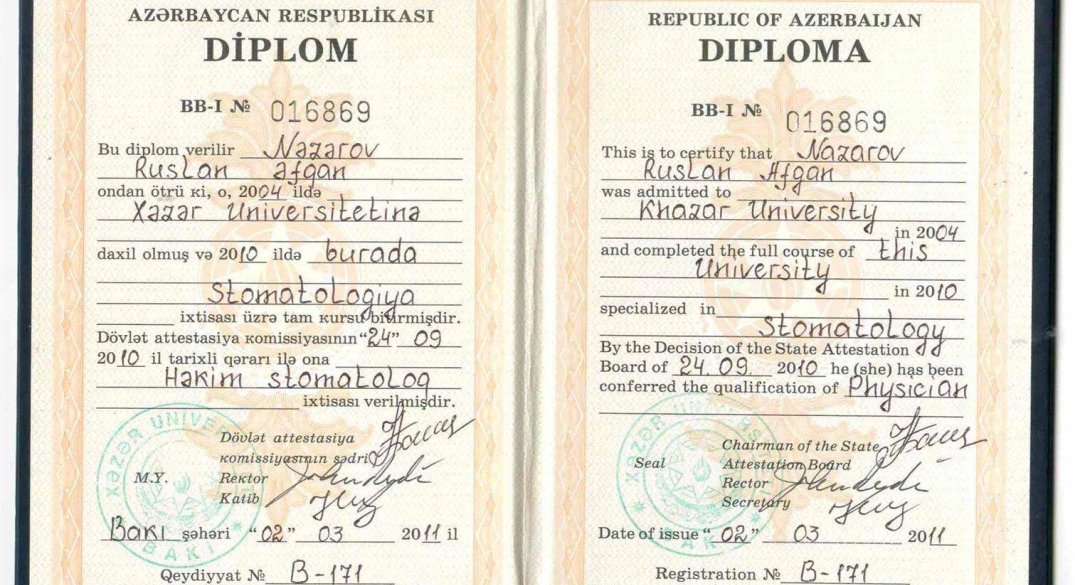 AZƏRBAYCAN RESPUBLİKASI
DİPLOM
BB-I № 016869
Bu diplom verilir Nəzərov
Ruslan Əfqan
ondan ötrü ki, o, 2004 ildə
Xəzər Universitetinə
daxil olmuş və 2010 ildə burada
Stomatologiya
ixtisası üzrə tam kursu bitirmişdir.
Dövlət attestasiya komissiyasının "24" 09
2010 il tarixli qərarı ilə ona
Həkim stomatoloq
ixtisası verilmişdir.
Dövlət attestasiya
komissiyasının sədri
M.Y.
Rektor
Katib
XƏZƏR UNIVER
BAKI
Bakı şəhəri "02" 03 2011 il
Qeydiyyat № B-171
REPUBLIC OF AZERBAIJAN
DIPLOMA
BB-I № 016869
This is to certify that Nazarov
Ruslan Afgan
was admitted to
Khazar University
in 2004
and completed the full course of this
University
in 2010
specialized in
Stomatology
By the Decision of the State Attestation
Board of 24.09. 2010 he (she) has been
conferred the qualification of Physician
Chairman of the State
Seal
Attestation Board
Rector
Secretary
XƏZƏR UNIVER
BAKI
Date of issue "02" 03 2011
Registration № B-171